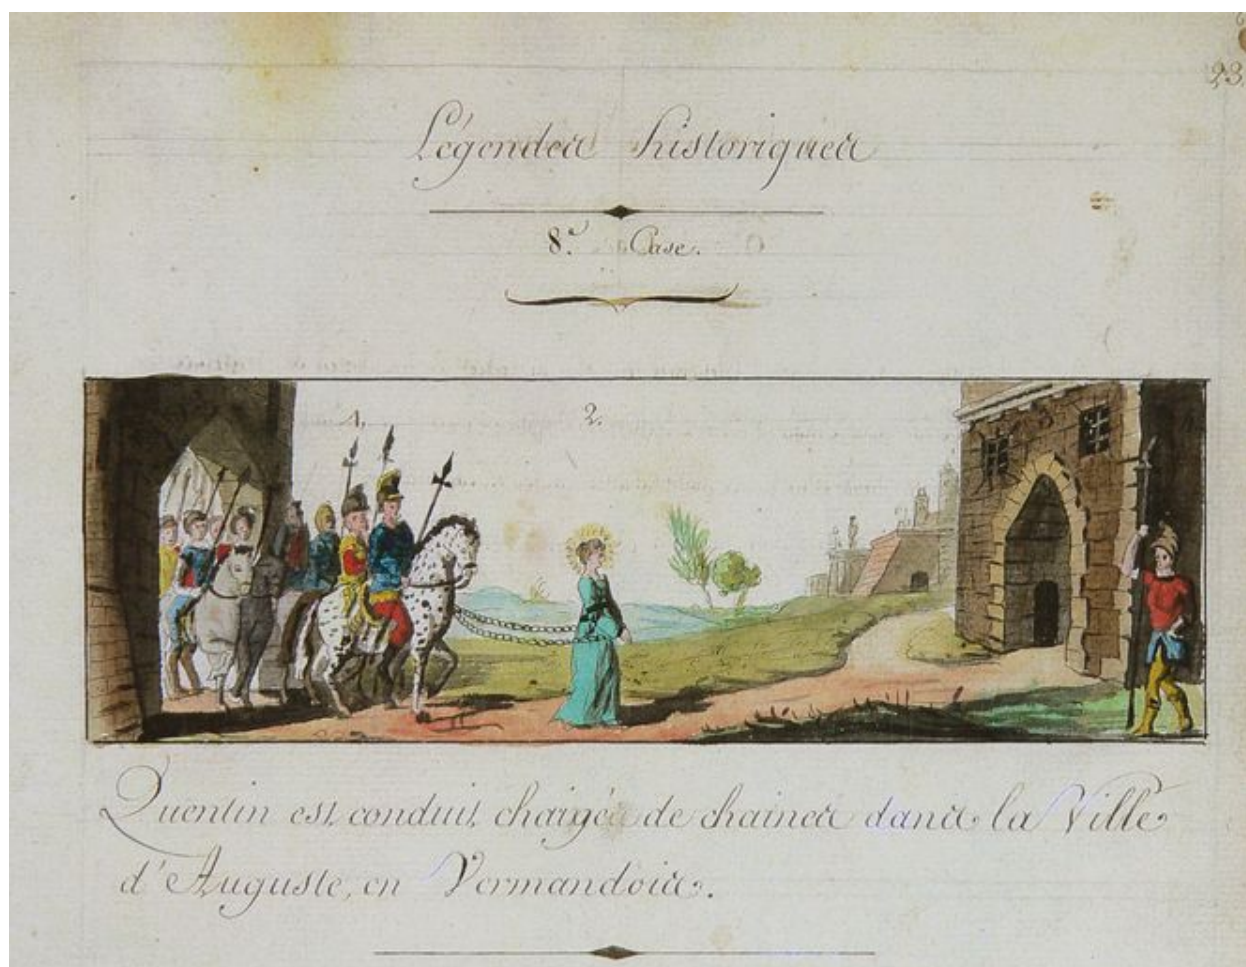 23.
Légendes historiques
8.e Case.
1. 2. 3.
Quentin est conduit chargé de chaines dans la Ville
d'Auguste, en Vermandois.